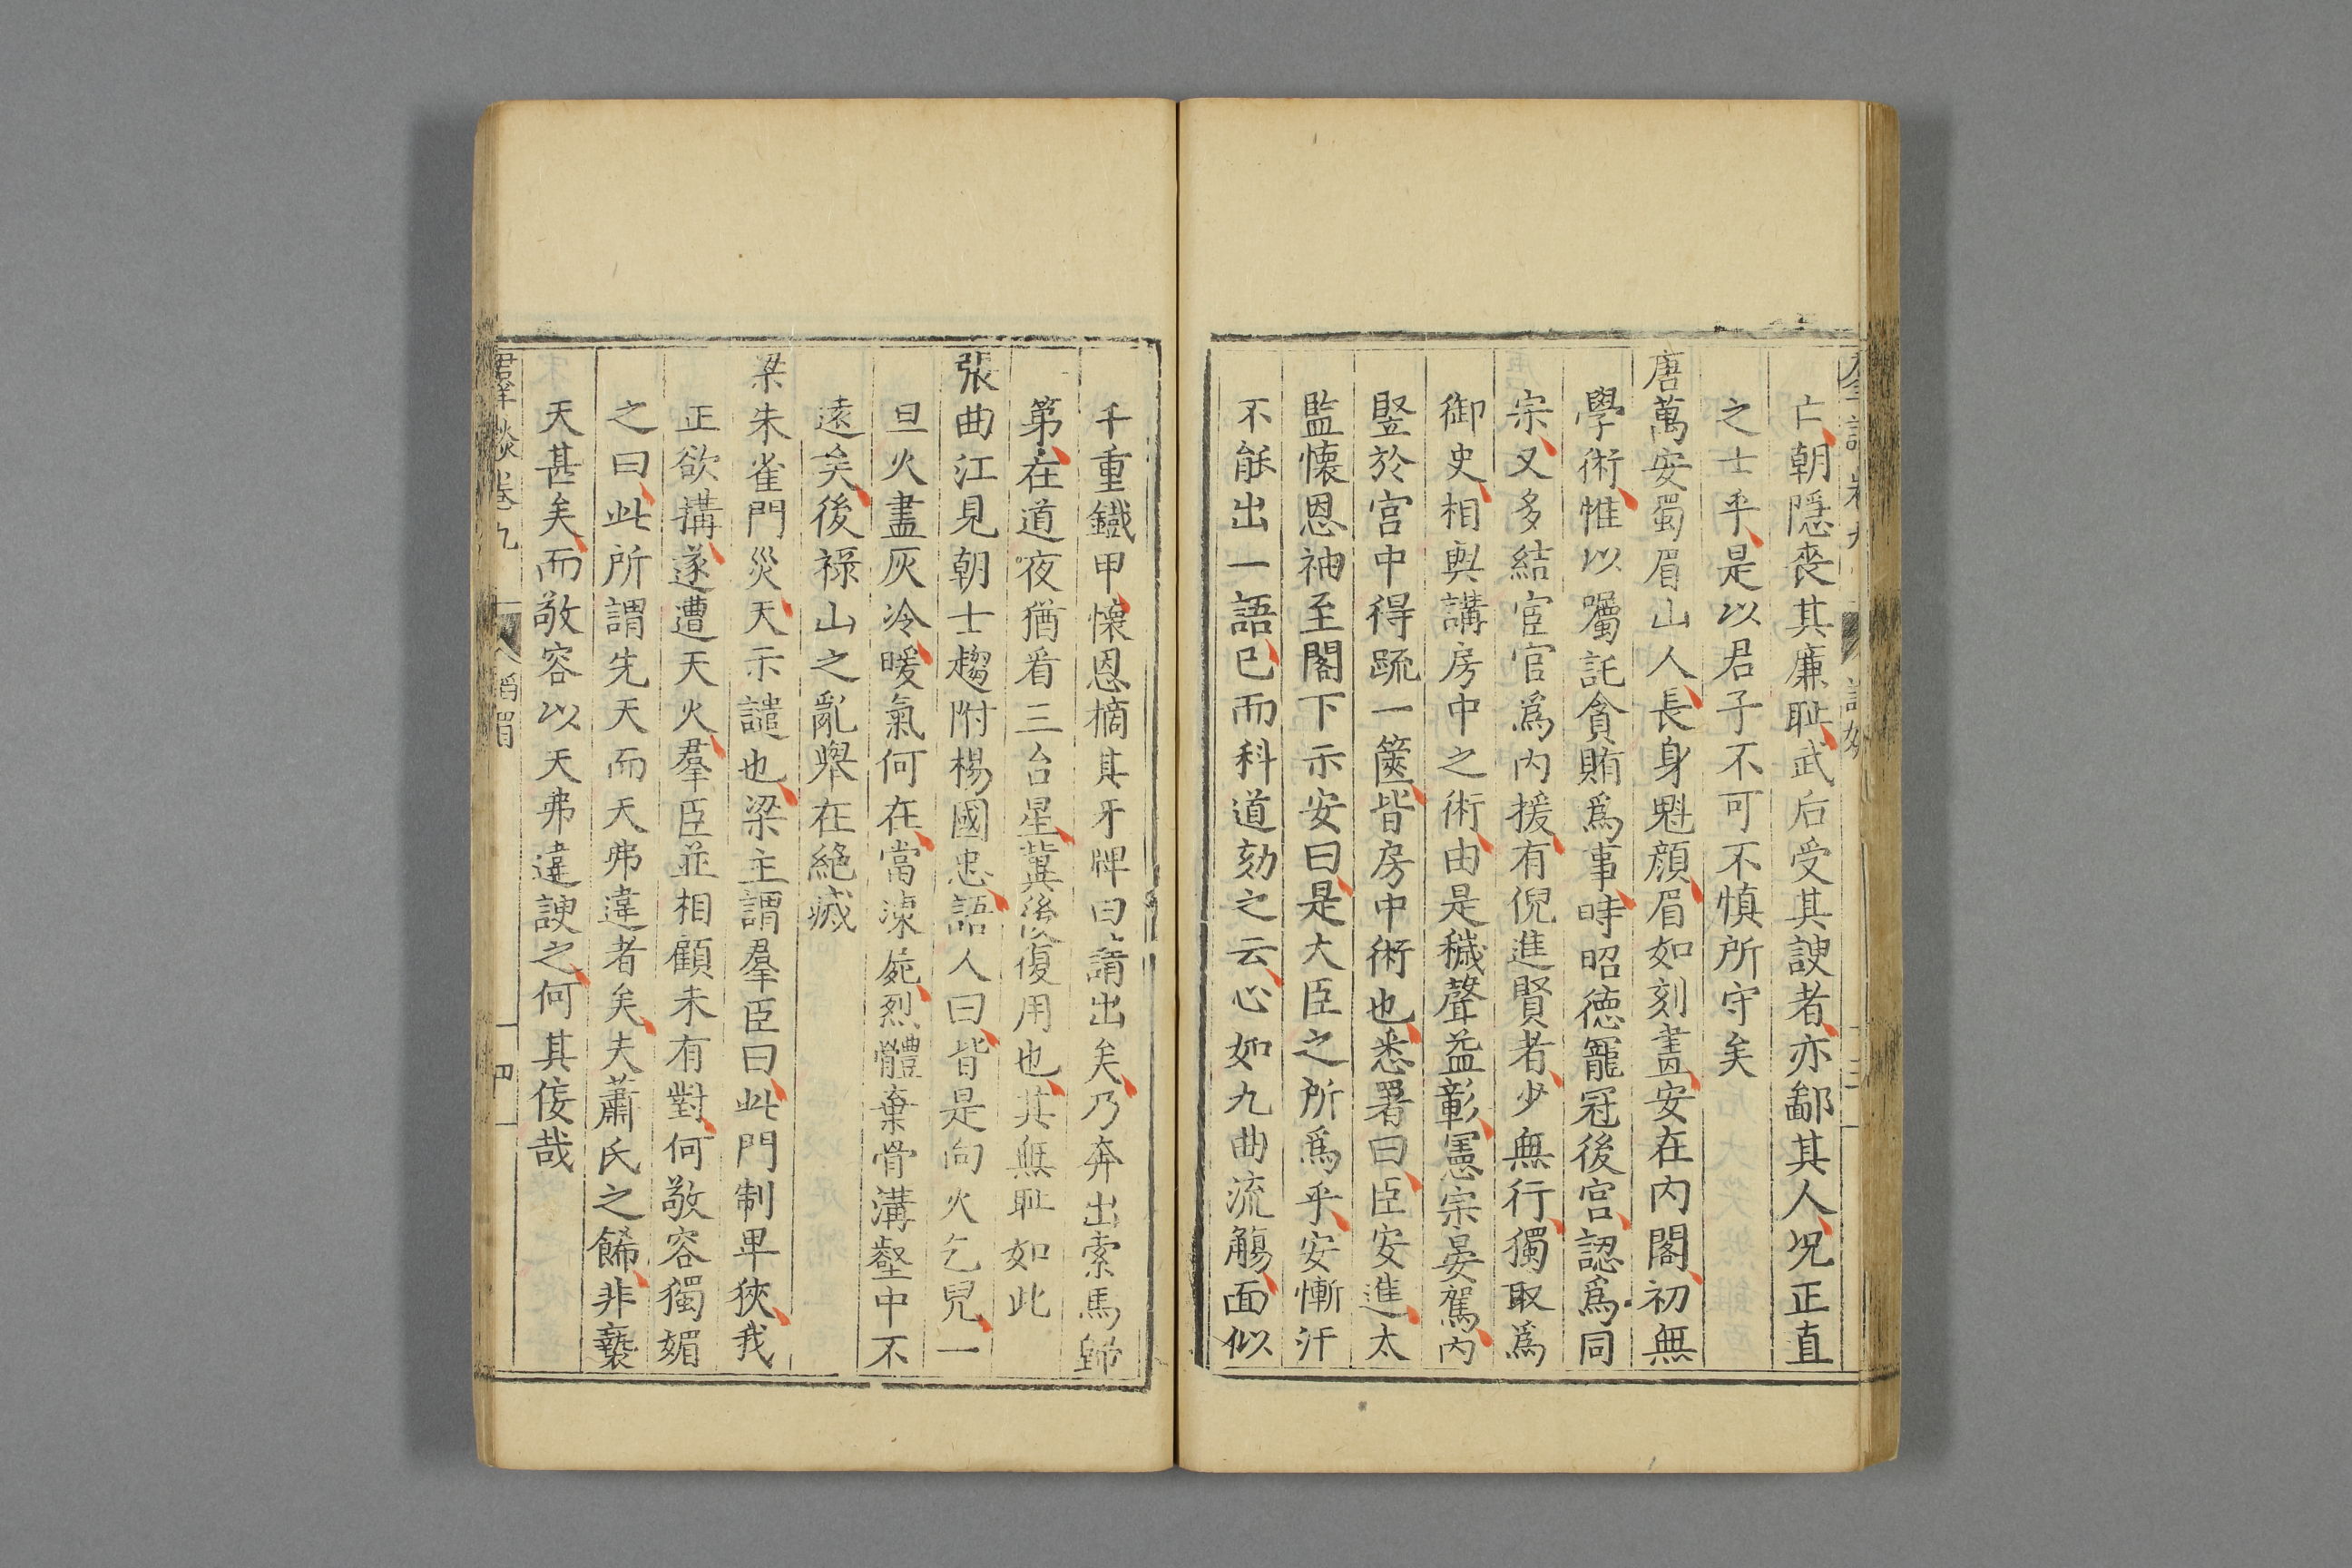 亡朝隱喪其廉耻武后受其諛者亦鄙其人况正直
之士乎是以君子不可不慎所守矣
唐萬安蜀眉山人長身魁顔眉如刻畫安在内閣初無
學術惟以囑託貪賄爲事時昭德寵冠後宫認爲同
宗又多結宦官爲内援有倪進賢者少無行獨取爲
御史相與講房中之術由是穢聲益彰憲宗晏駕内
竪於宫中得疏一篋皆房中術也悉署曰臣安進太
監懷恩袖至閣下示安曰是大臣之所爲乎安慚汗
不能出一語已而科道劾之云心如九曲流觴面似
千重鐵甲懷恩摘其牙牌曰請出矣乃奔出索馬歸
第在道夜猶看三台星冀後復用也其無耻如此
張曲江見朝士趨附楊國忠語人曰皆是向火乞兒一
旦火盡灰冷暖氣何在當凍屍烈體棄骨溝壑中不
遠矣後祿山之亂舉在絶滅
梁朱雀門災天示譴也梁主謂羣臣曰此門制卑狹我
正欲搆遂遭天火羣臣並相顧未有對何敬容獨媚
之曰此所謂先天而天弗違者矣夫蕭氏之餙非褻
天甚矣而敬容以天弗違諛之何其侫哉
羣談卷九 四